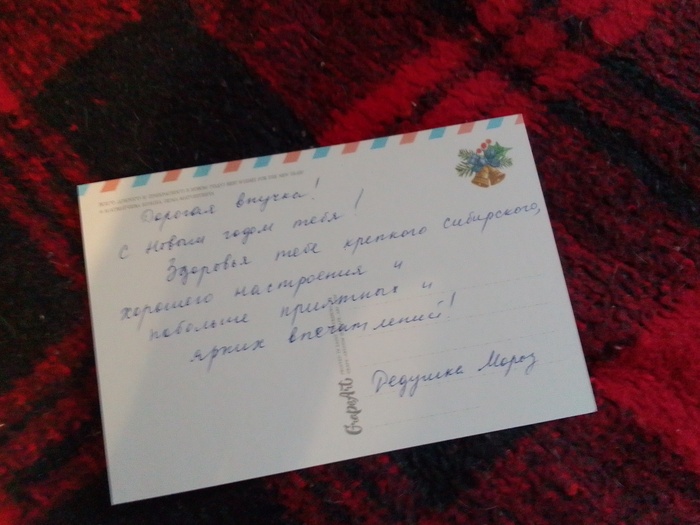 Дорогая внучка!
С Новым годом тебя!
Здоровья тебе крепкого сибирского,
хорошего настроения и
побольше приятных и
ярких впечатлений!
Дедушка Мороз